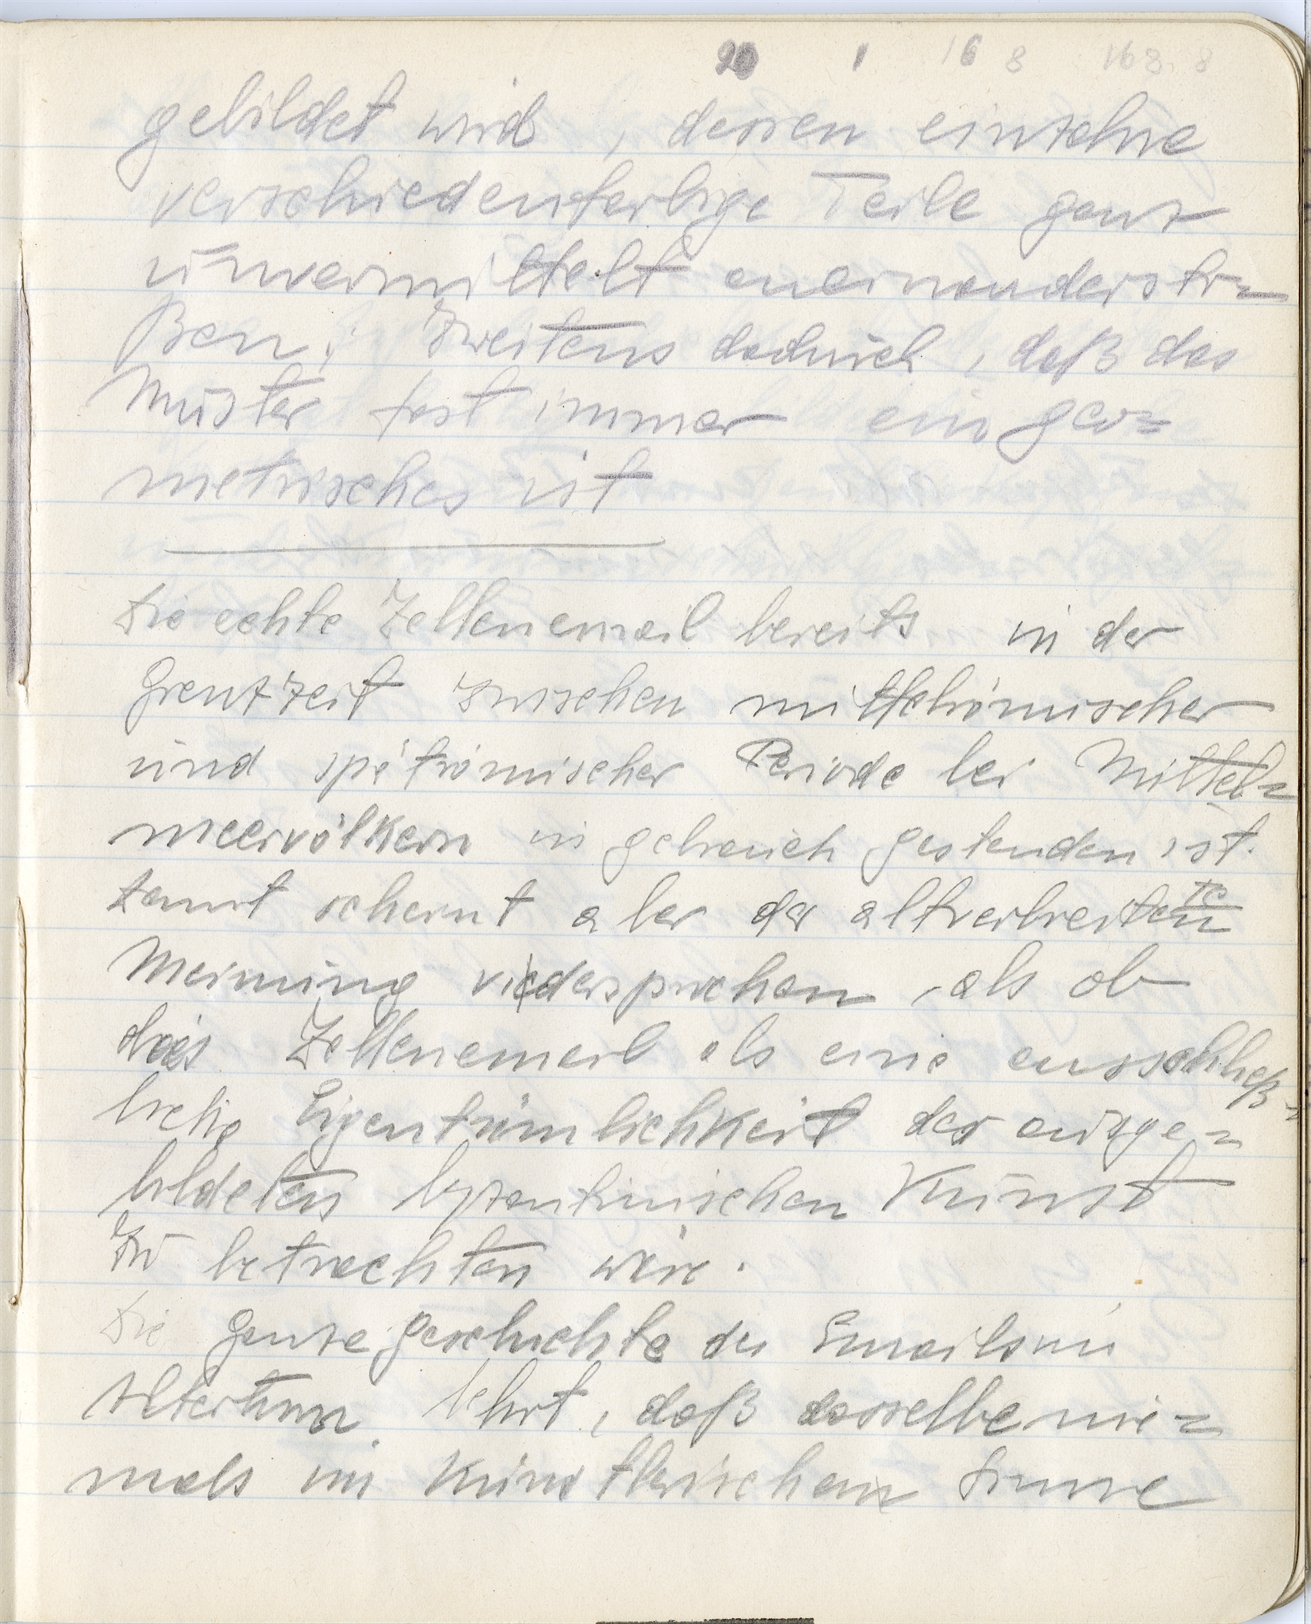 20 1 16 8 168. 8
gebildet wird, dessen einzelne
verschiedenfarbige Teile ganz
unvermittelt aneinandersto=
ßen; Zweitens dadurch, daß das
Muster fast immer ein geo=
metrisches ist
Die echte Zellenemail bereits in der
Grenzzeit zwischen mittelrömischer
und spätrömischer Periode bei Mittel=
meervölkern in gebrauch gestanden ist.
Damit scheint aber der altverbreiteten te
Meinung wiedersprochen, als ob
das Zellenemail als eine ausschließ=
liche Eigentümlichkeit der ausge=
bildeten byzantinischen Kunst
Zu betrachten wäre.
Die ganze geschichte des Emails im
Altertum lehrt, daß dasselbe nie=
mals im künstlerischen Sinne